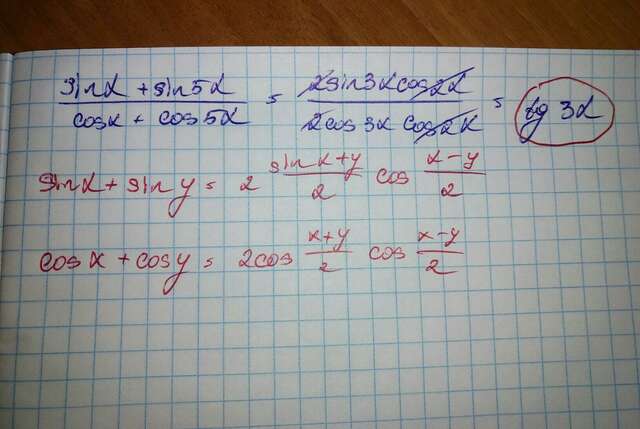 (sinα + sin5α)/(cosα + cos5α) = (2sin3αcos2α)/(2cos3αcos2α) = tg 3α
sinx + siny = 2 (sinx+y)/2 cos (x-y)/2
cosx + cosy = 2cos (x+y)/2 cos (x-y)/2